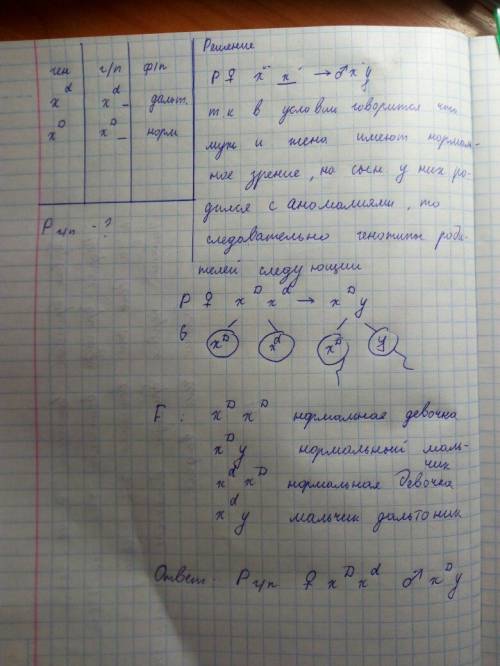 ген г/п ф/п
x^d x^d – дальт.
x^D x^D – норм
P г/п - ?
Решение
P ♀ x¨ x¨ → ♂ x¨y
т к в условии говорится что
муж и жена имеют нормаль-
ное зрение, но сын у них ро-
дился с аномалиями, то
следовательно генотипы роди-
телей следующии
P ♀ x^D x^d → x^D y
G x^D x^d x^D y
F : x^D x^D нормальная девочка
x^D y нормальный маль-
чик
x^d x^D нормальная девочка
x^d y мальчик дальтоник
Ответ: P г/п ♀ x^D x^d ♂ x^D y